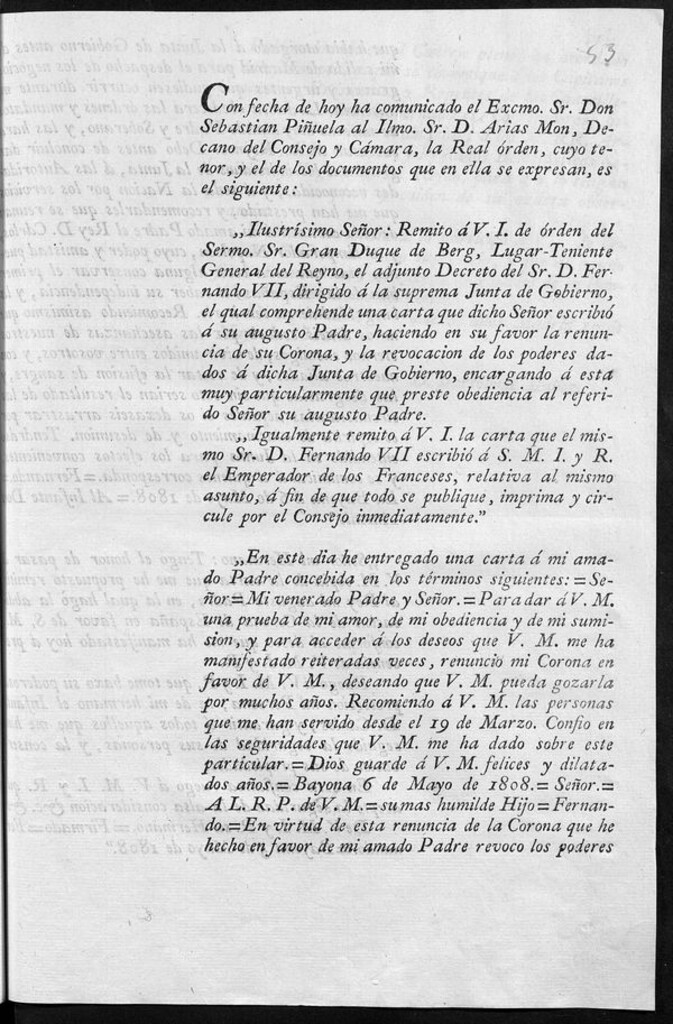 53
Con fecha de hoy ha comunicado el Excmo. Sr. Don
Sebastian Piñuela al Ilmo. Sr. D. Arias Mon, De-
cano del Consejo y Cámara, la Real órden, cuyo te-
nor, y el de los documentos que en ella se expresan, es
el siguiente:
„Ilustrísimo Señor: Remito á V. I. de órden del
Sermo. Sr. Gran Duque de Berg, Lugar-Teniente
General del Reyno, el adjunto Decreto del Sr. D. Fer-
nando VII, dirigido á la suprema Junta de Gobierno,
el qual comprehende una carta que dicho Señor escribió
á su augusto Padre, haciendo en su favor la renun-
cia de su Corona, y la revocacion de los poderes da-
dos á dicha Junta de Gobierno, encargando á esta
muy particularmente que preste obediencia al referi-
do Señor su augusto Padre.
„Igualmente remito á V. I. la carta que el mis-
mo Sr. D. Fernando VII escribió á S. M. I. y R.
el Emperador de los Franceses, relativa al mismo
asunto, á fin de que todo se publique, imprima y cir-
cule por el Consejo inmediatamente.”
„En este dia he entregado una carta á mi ama-
do Padre concebida en los términos siguientes: = Se-
ñor = Mi venerado Padre y Señor. = Para dar á V. M.
una prueba de mi amor, de mi obediencia y de mi sumi-
sion, y para acceder á los deseos que V. M. me ha
manifestado reiteradas veces, renuncio mi Corona en
favor de V. M., deseando que V. M. pueda gozarla
por muchos años. Recomiendo á V. M. las personas
que me han servido desde el 19 de Marzo. Confio en
las seguridades que V. M. me ha dado sobre este
particular. = Dios guarde á V. M. felices y dilata-
dos años. = Bayona 6 de Mayo de 1808. = Señor. =
A L. R. P. de V. M. = su mas humilde Hijo = Fernan-
do. = En virtud de esta renuncia de la Corona que he
hecho en favor de mi amado Padre revoco los poderes